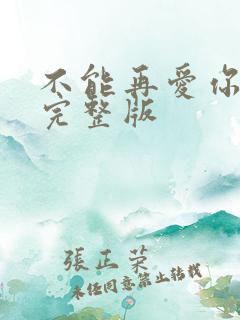 不能再愛你
完整版
張正榮
未经同意禁止转载